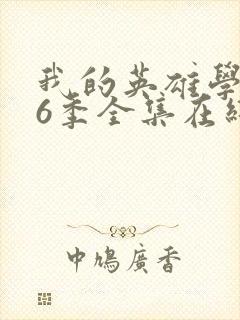 我的英雄學
6季全集在
中鳩廣香